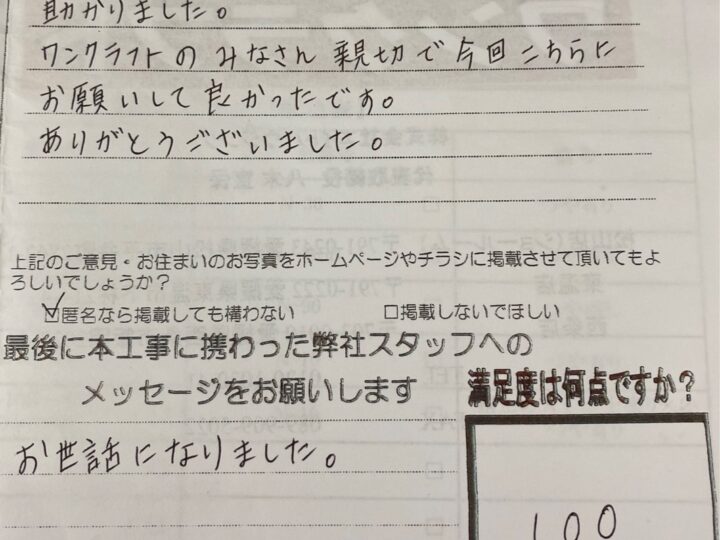 助かりました。
ワンクラフトの みなさん 親切で 今回 こちらに
お願いして 良かったです。
ありがとうございました。
上記のご意見・お住まいのお写真をホームページやチラシに掲載させて頂いてもよ
ろしいでしょうか？
☑匿名なら掲載しても構わない □掲載しないでほしい
最後に本工事に携わった弊社スタッフへの
メッセージをお願いします
満足度は何点ですか？
お世話になりました。
100